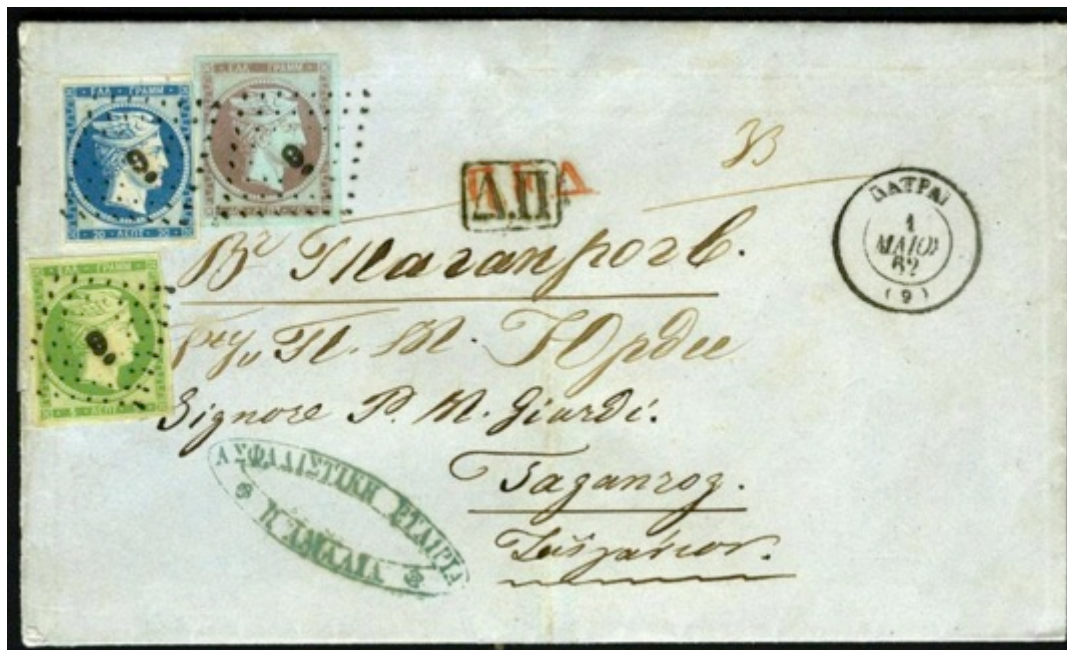 ΕΛΛ ΓΡΑΜΜ
20 ΛΕΠΤ 20
9
ΕΛΛ ΓΡΑΜΜ
9
ΕΛΛ ΓΡΑΜΜ
5 ΛΕΠΤ 5
9
Δ.Π
ΠΑΤΡΑΙ
1
ΜΑΙΟΥ
62
(9)
Въ Таганрогъ.
П. М.
Signore P. M. Giurdi.
Taganrog.
ΑΣΦΑΛΙΣΤΙΚΗ ΕΤΑΙΡΙΑ
Η ΑΜΑΛΙΑ